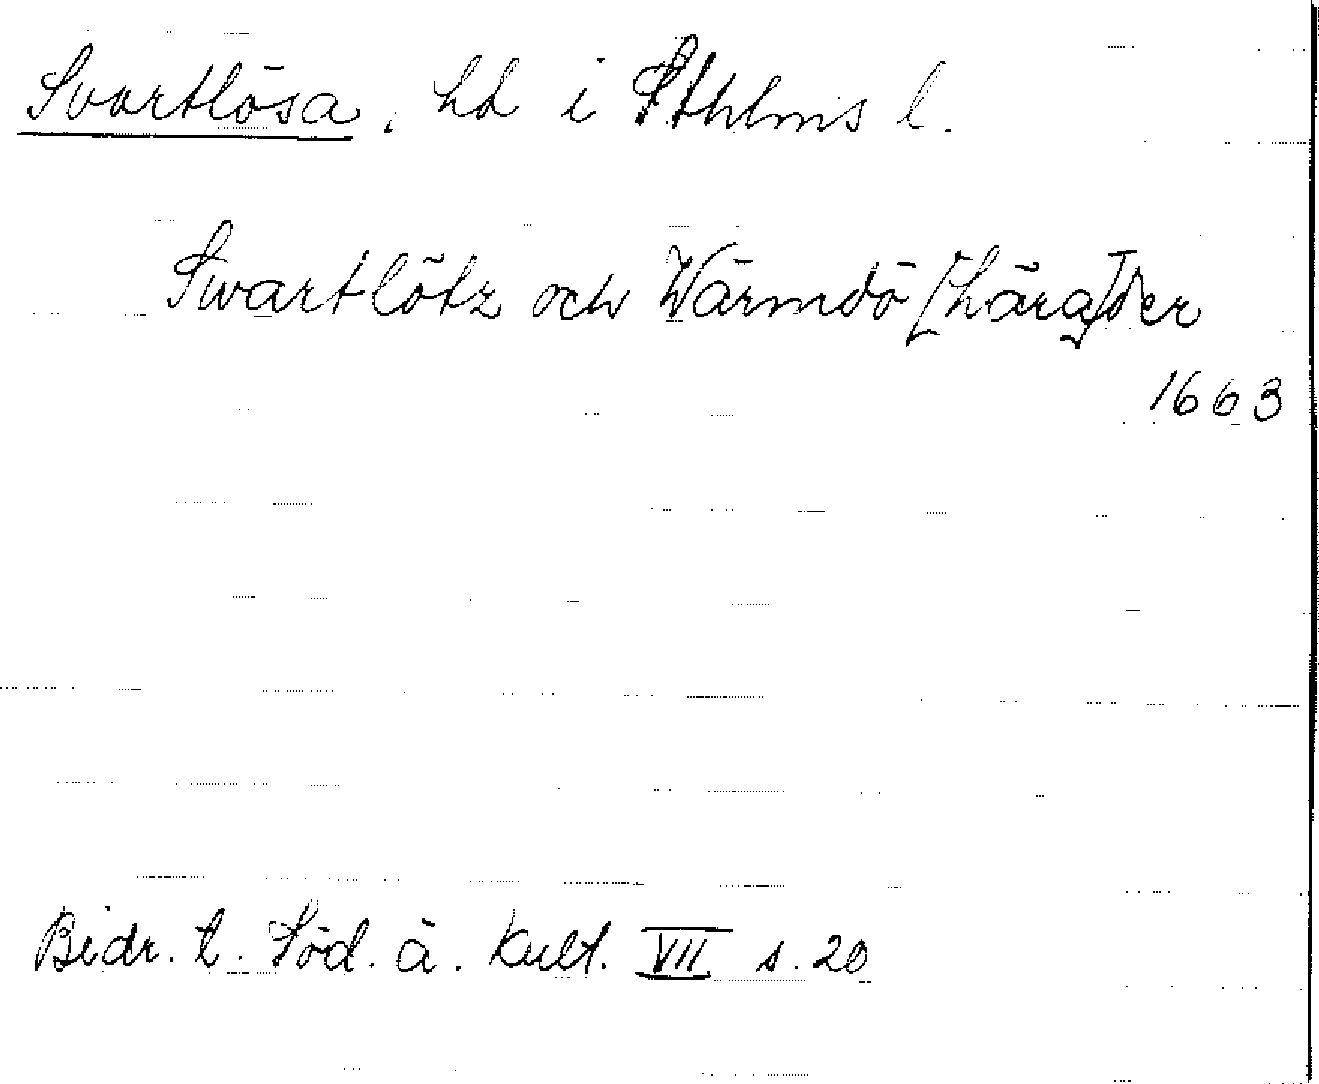 Svartlösa, hd i Sthlms l.
Swartlötz och Wärmdö [hära]der
1663
Bidr. t. Söd. ä. kult. VII s. 20